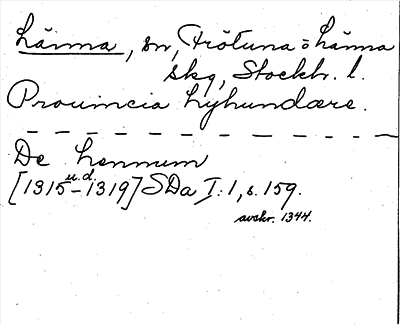 Länna, sn, Frötuna o Länna
skg, Stockh. l.
Prouincia Lyhundære.
De Lennum
[1315 u.d. – 1319] SDa I:1, s. 159.
avskr. 1344.